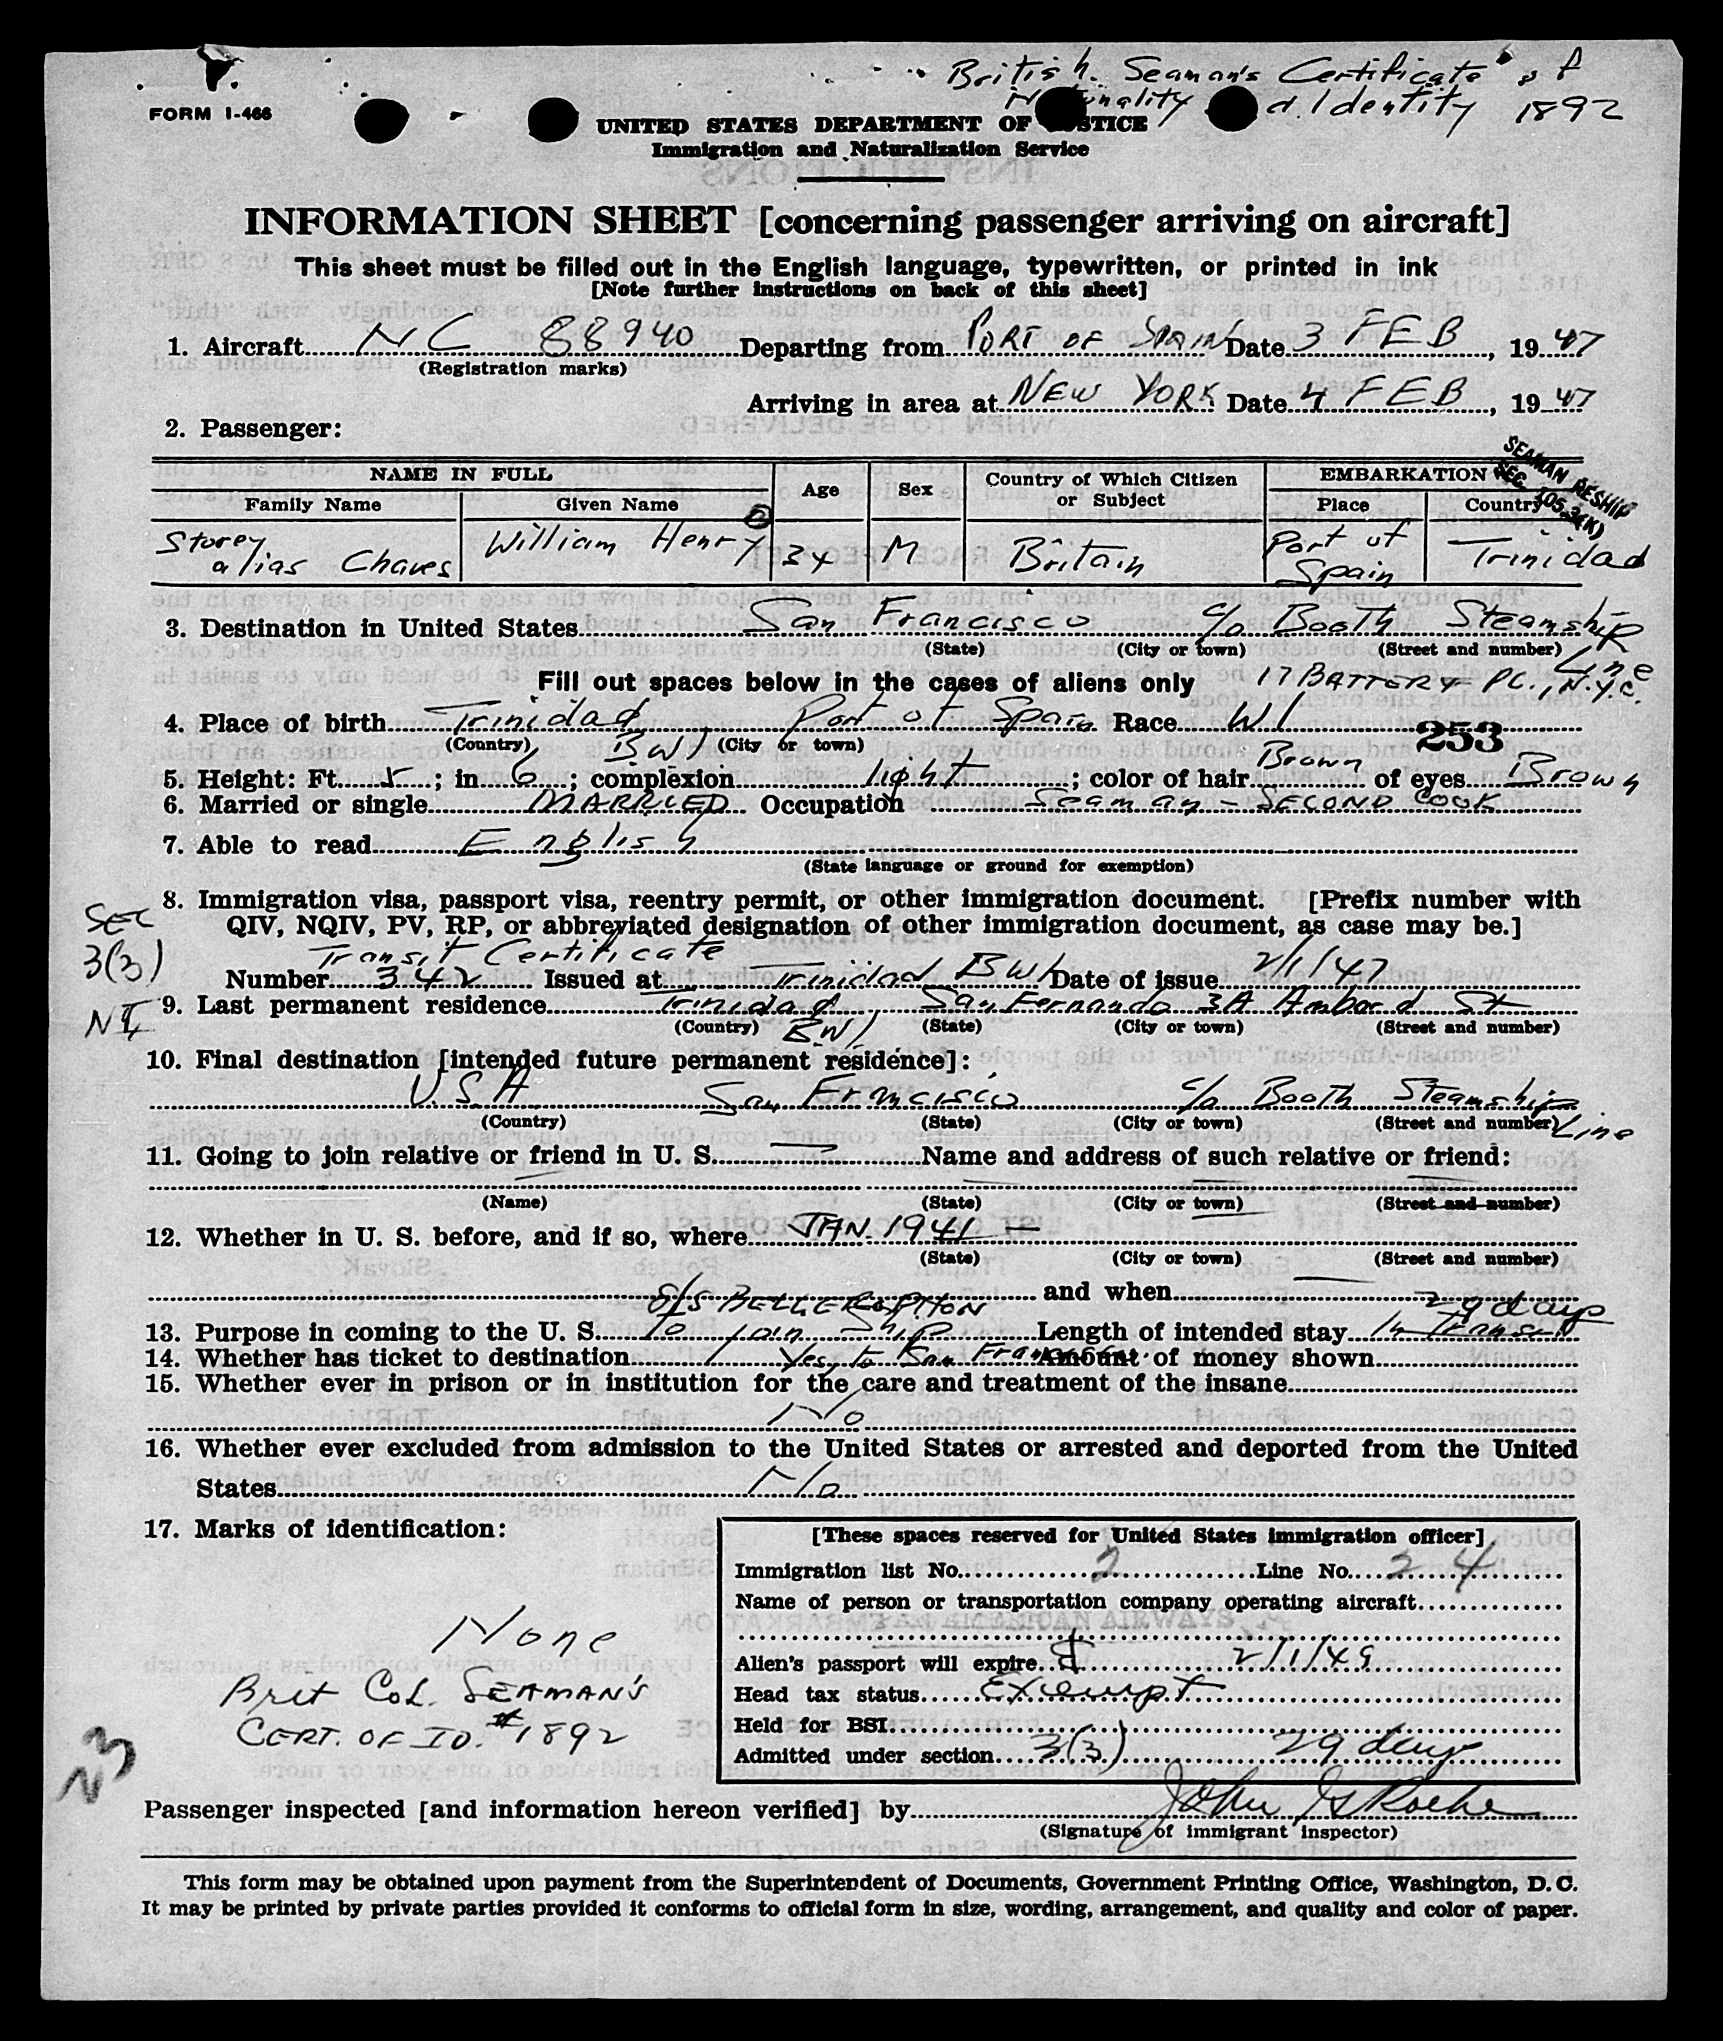 British Seaman's Certificate of
Nationality and Identity 1892
FORM I-466
UNITED STATES DEPARTMENT OF JUSTICE
Immigration and Naturalization Service
INFORMATION SHEET [concerning passenger arriving on aircraft]
This sheet must be filled out in the English language, typewritten, or printed in ink
[Note further instructions on back of this sheet]
1. Aircraft NC 88940 Departing from PORT OF SPAIN Date 3 FEB, 1947
(Registration marks)
Arriving in area at NEW YORK Date 4 FEB, 1947
2. Passenger:
SEAMAN RESHIP
SEC. 105.3(K)
NAME IN FULL Age Sex Country of Which Citizen or Subject EMBARKATION
Family Name Given Name Place Country
Storey alias Chaves William Henry 34 M Britain Port of Spain Trinidad
3. Destination in United States San Francisco c/o Booth Steamship Line
(State) (City or town) (Street and number)
17 BATTERY PL., N.Y.C.
Fill out spaces below in the cases of aliens only
4. Place of birth Trinidad BWI Port of Spain Race WI
253
(Country) (City or town)
5. Height: Ft. 5; in. 6; complexion light; color of hair Brown of eyes Brown
6. Married or single MARRIED Occupation Seaman - SECOND COOK
7. Able to read English
(State language or ground for exemption)
8. Immigration visa, passport visa, reentry permit, or other immigration document. [Prefix number with
QIV, NQIV, PV, RP, or abbreviated designation of other immigration document, as case may be.]
SEC
3(3)
Transit Certificate
Number 342 Issued at Trinidad BWI Date of issue 2/1/47
9. Last permanent residence Trinidad B.W.I. San Fernando 3A Ambard St
(Country) (State) (City or town) (Street and number)
10. Final destination [intended future permanent residence]:
U.S.A San Francisco c/o Booth Steamship Line
(Country) (State) (City or town) (Street and number)
11. Going to join relative or friend in U. S. — Name and address of such relative or friend:
(Name) (State) (City or town) (Street and number)
12. Whether in U. S. before, and if so, where JAN. 1941 —
(State) (City or town) (Street and number)
and when —
S/S BELLEROPHON 29 days
13. Purpose in coming to the U. S. To join Ship Length of intended stay In Transit
14. Whether has ticket to destination Yes, to San Francisco. Amount of money shown
15. Whether ever in prison or in institution for the care and treatment of the insane
No
16. Whether ever excluded from admission to the United States or arrested and deported from the United
States No
17. Marks of identification:
None
Brit Col. SEAMAN'S
CERT. OF ID. #1892
[These spaces reserved for United States immigration officer]
Immigration list No. 2 Line No. 24
Name of person or transportation company operating aircraft
PAN AMERICAN AIRWAYS
Alien's passport will expire 2/1/49
Head tax status Exempt
Held for BSI
Admitted under section 3(3) 29 days
Passenger inspected [and information hereon verified] by John G Roche
(Signature of immigrant inspector)
This form may be obtained upon payment from the Superintendent of Documents, Government Printing Office, Washington, D. C.
It may be printed by private parties provided it conforms to official form in size, wording, arrangement, and quality and color of paper.